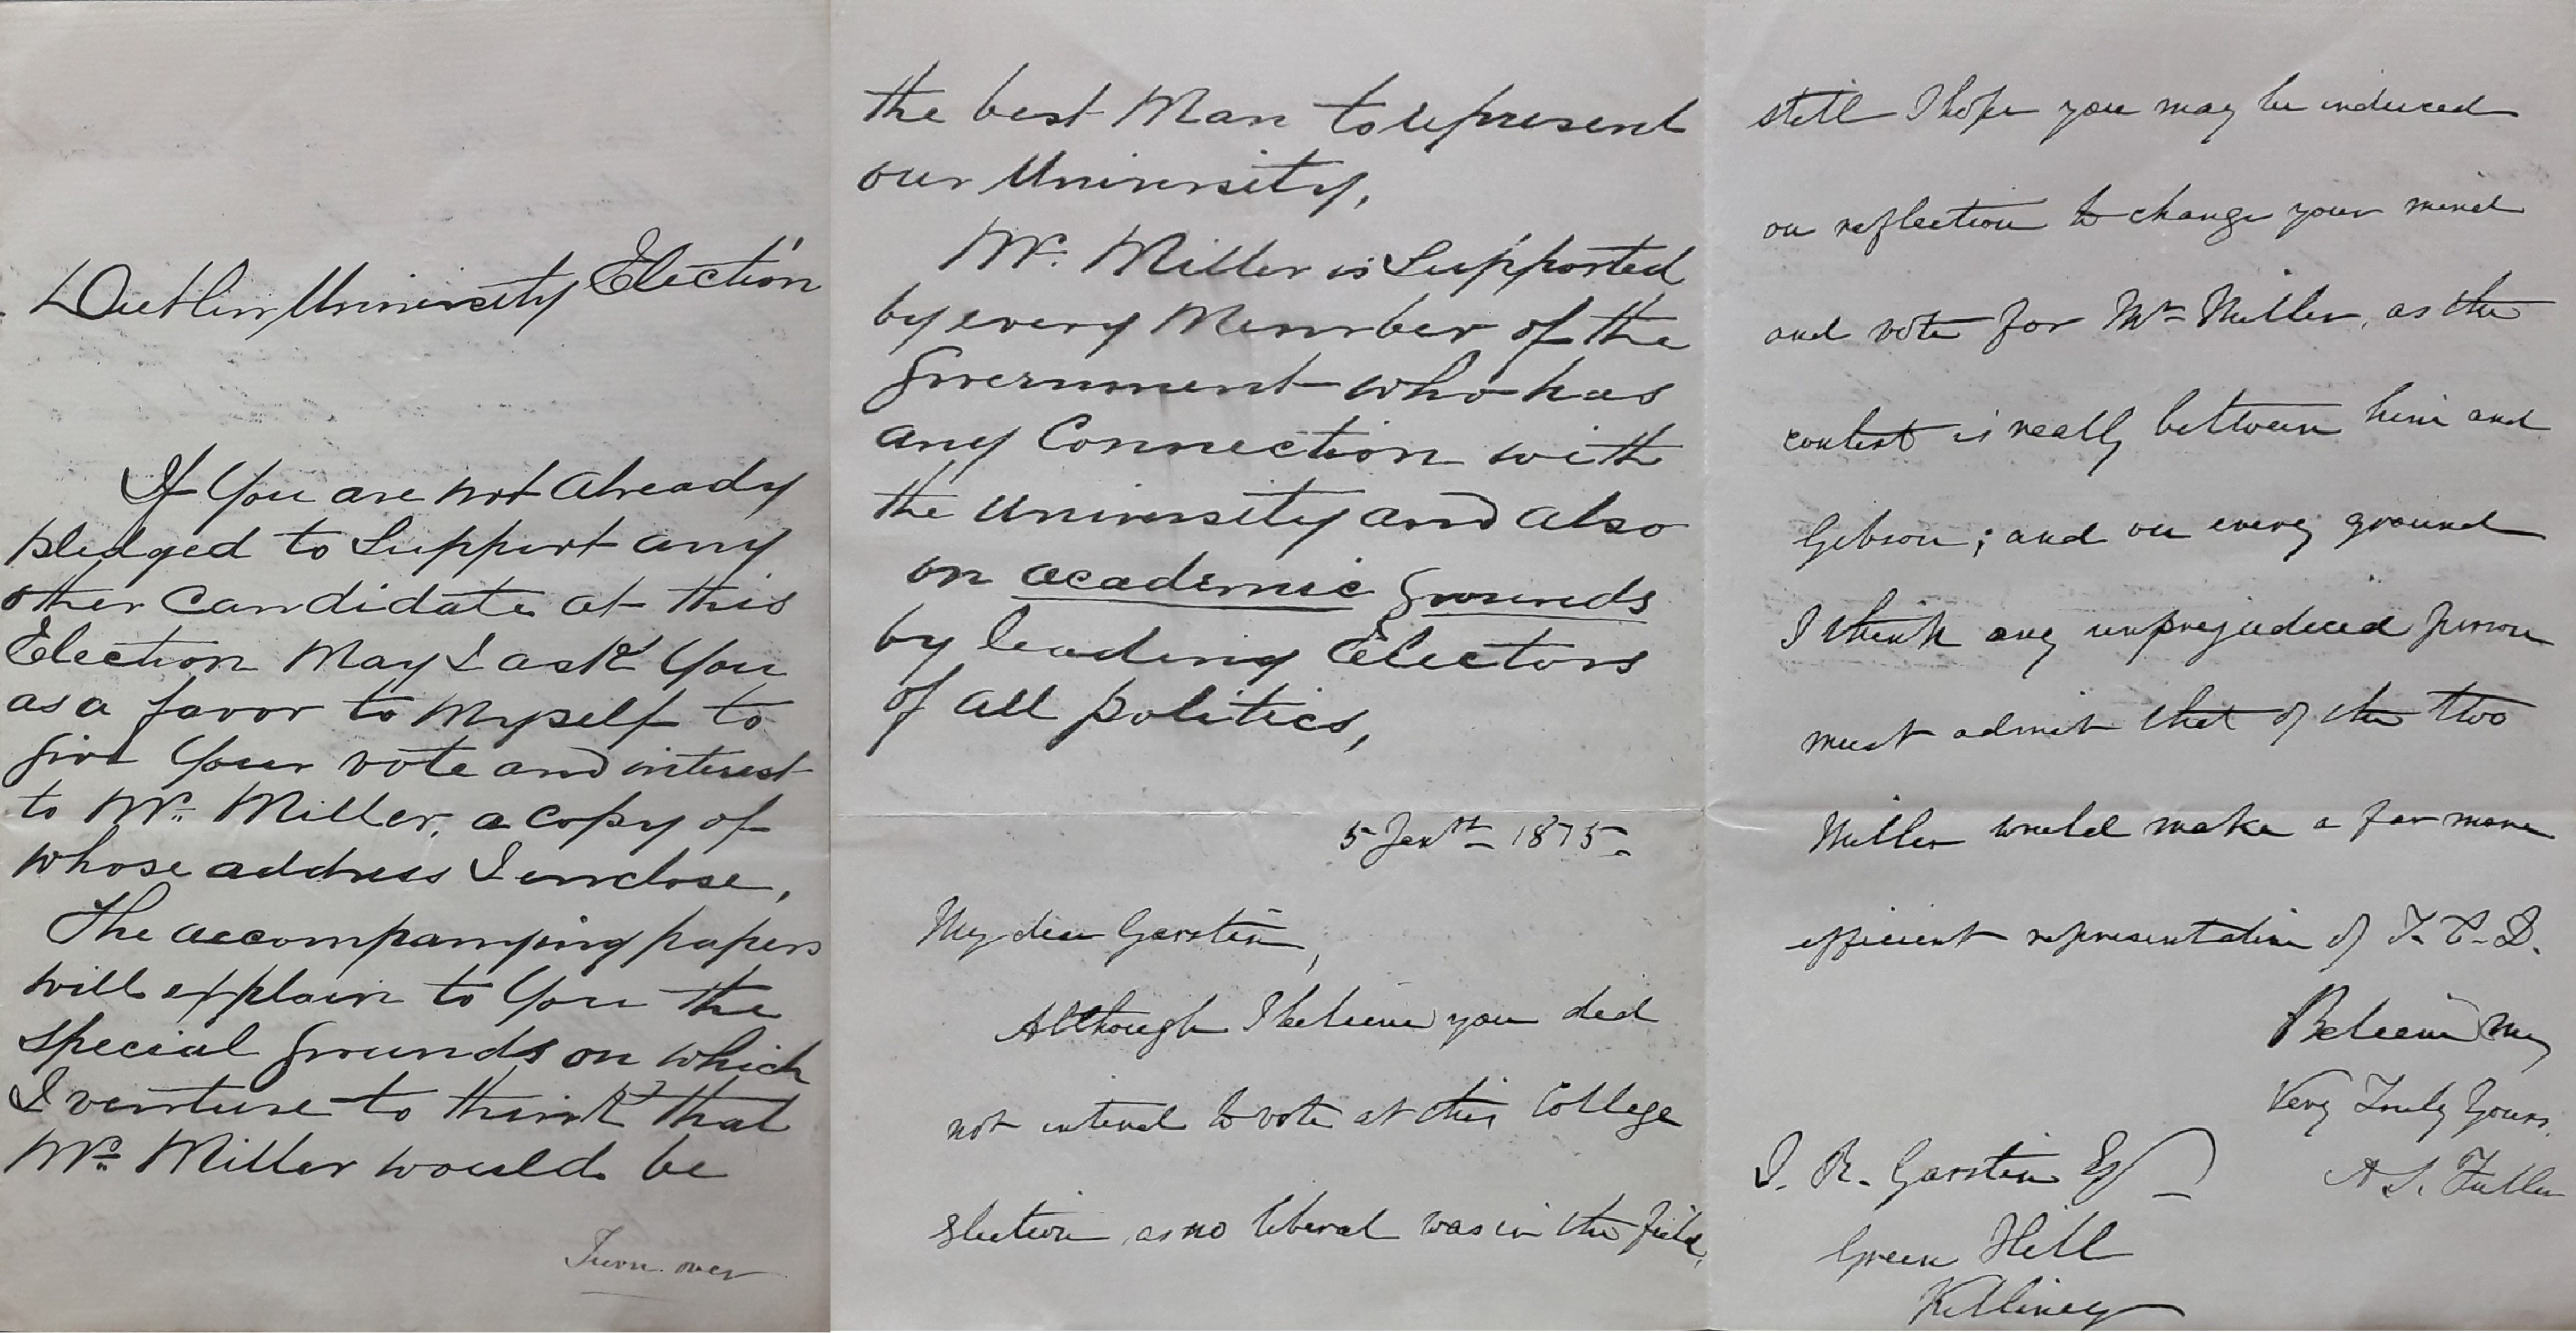 Dublin University Election
If You are not already
pledged to Support any
other Candidate at this
Election May I ask You
as a favor to Myself to
give Your vote and interest
to Mr. Miller, a copy of
whose address I enclose,
The accompanying papers
will explain to You the
special grounds on which
I venture to think that
Mr. Miller would be
Turn over
the best Man to represent
our University,
Mr. Miller is Supported
by every Member of the
Government who has
any Connection with
the University and also
on academic grounds
by leading Electors
of all politics,
5 Jany. 1875
My dear Garstin,
Although I believe you did
not intend to vote at this College
Election as no liberal was in the field,
still I hope you may be induced
on reflection to change your mind
and vote for Mr. Miller, as the
contest is really between him and
Gibson; and on every ground
I think any unprejudiced person
must admit that of the two
Miller would make a far more
efficient representative of T.C.D.
Believe me
Very Truly Yours,
A S. Fuller
J. R. Garstin Esq
Green Hill
Killiney